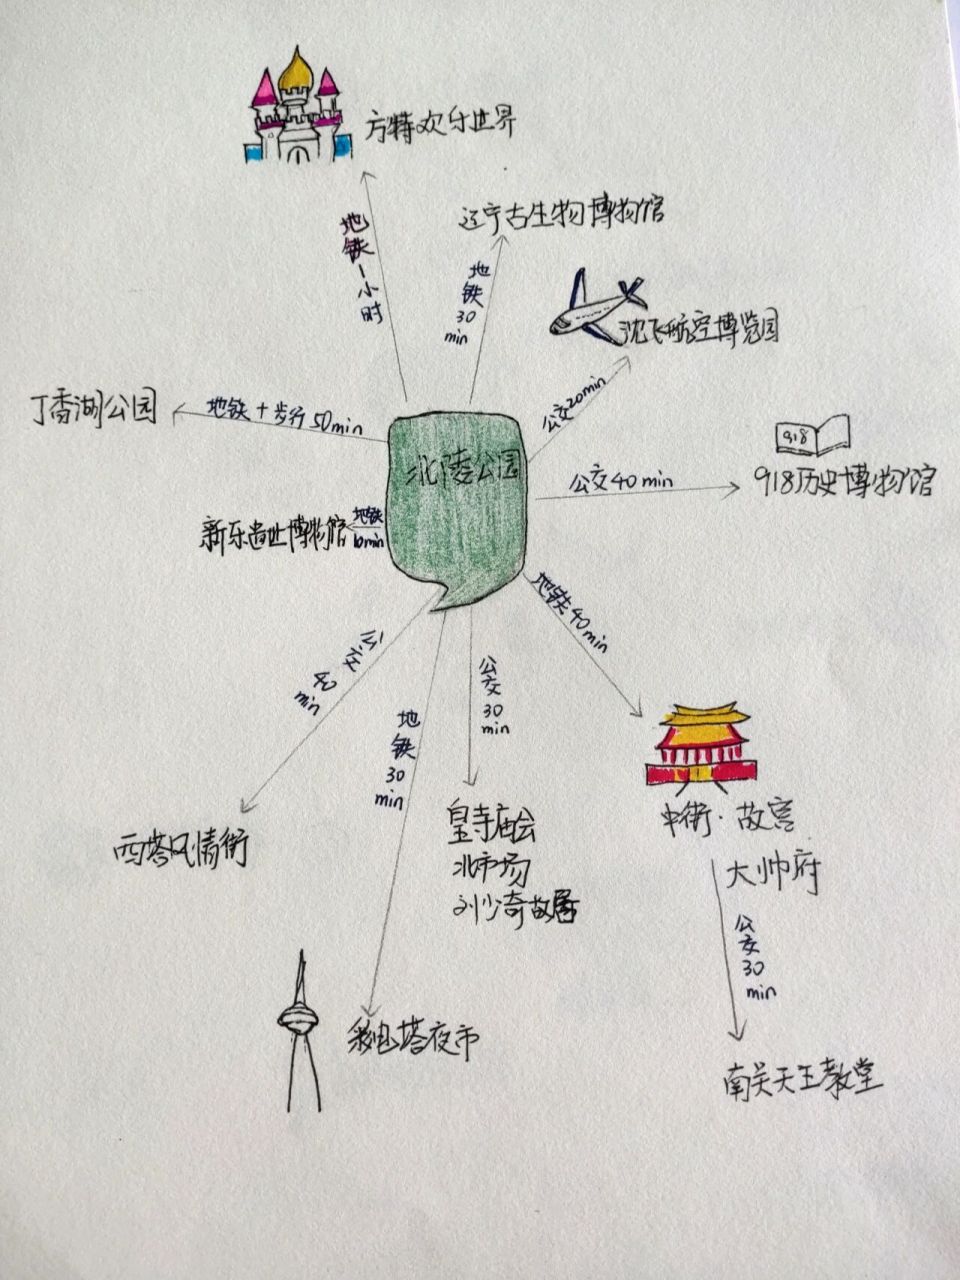 方特欢乐世界
地铁一小时
辽宁古生物博物馆
地铁30min
沈飞航空博览园
公交20min
丁香湖公园
地铁+步行50min
北陵公园
918
公交40min
918历史博物馆
新乐遗址博物馆
地铁10min
地铁40min
公交40min
地铁30min
公交30min
中街·故宫
大帅府
皇寺庙会
北市场
刘少奇故居
西塔风情街
公交30min
彩电塔夜市
南关天主教堂